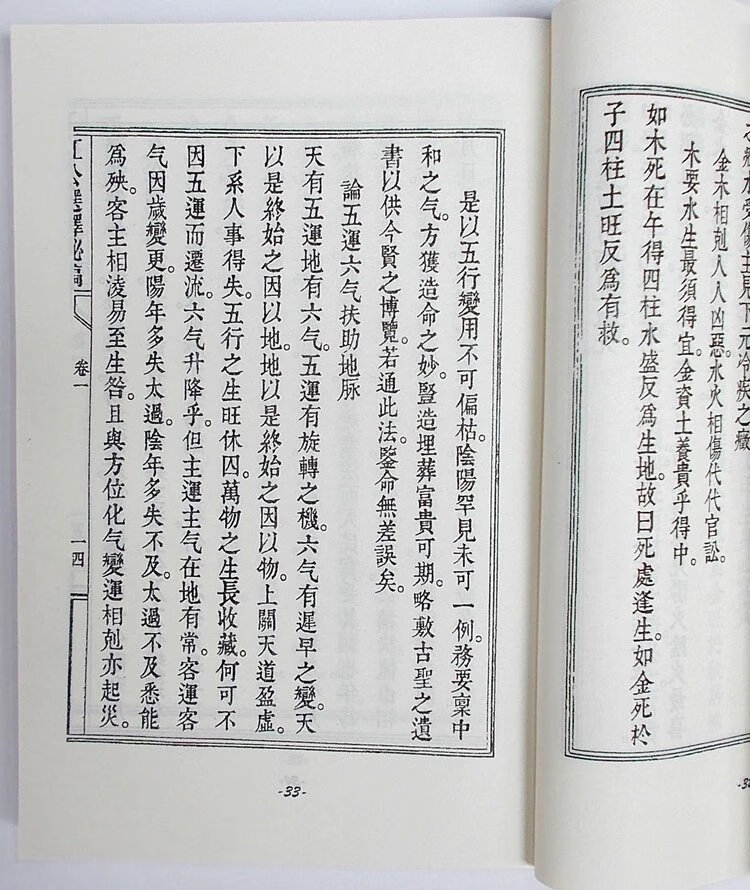 下元冷疾之癥
金木相剋人人凶惡。水火相傷代代官訟。
木要水生最須得宜。金資土養貴乎得中。
如木死在午得四柱水盛反爲生地故曰死處逢生。如金死於
子四柱土旺反爲有救。
是以五行變用不可偏枯。陰陽罕見未可一例。務要稟中
和之气。方獲造命之妙。豎造埋葬富貴可期。略敷古聖之遺
書以供今賢之博覽。若通此法。鑒命無差誤矣。
論五運六气扶助地脉
天有五運地有六气。五運有旋轉之機。六气有遲早之變。天
以是終始之因以地。地以是終始之因以物。上關天道盈虛。
下系人事得失。五行之生旺休囚。萬物之生長收藏。何可不
因五運而遷流。六气升降乎。但主運主气在地有常。客運客
气因歲變更。陽年多失太過。陰年多失不及。太過不及悉能
爲殃。客主相淩易至生咎。且與方位化气變運相剋亦起災。
公選擇秘
卷一
一四
-33-